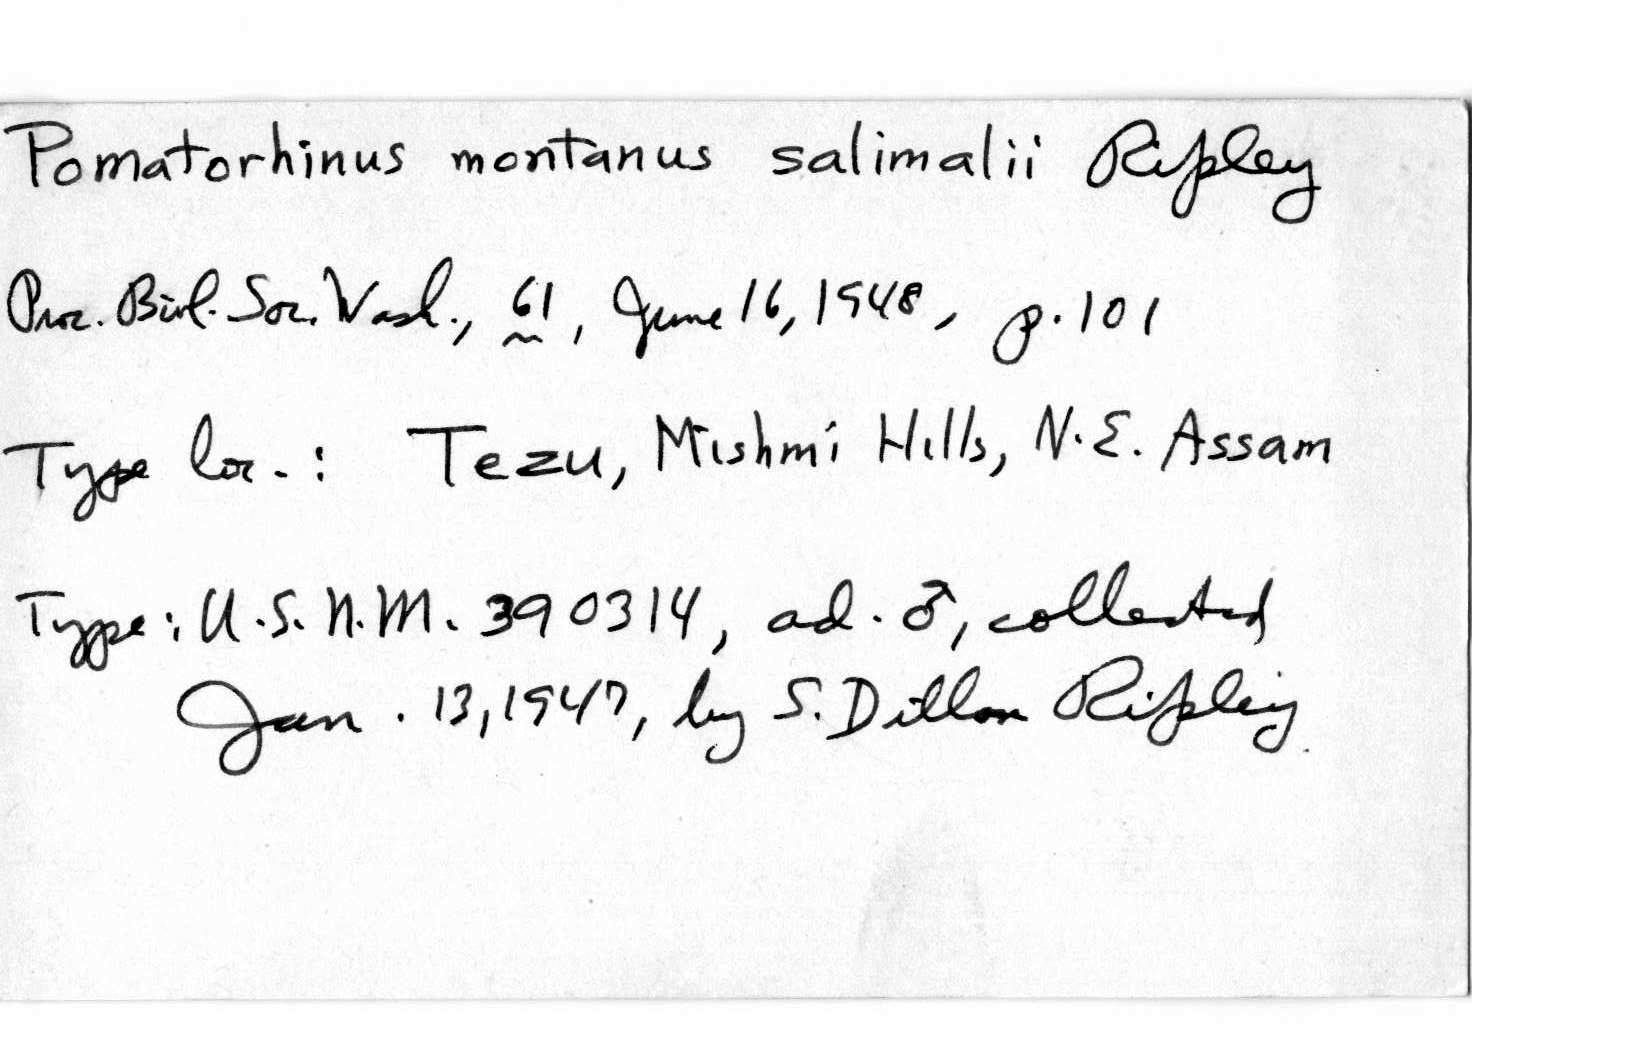 Pomatorhinus montanus salimalii Ripley
Proc. Biol. Soc. Wash., 61, June 16, 1948, p. 101
Type loc.: Tezu, Mishmi Hills, N.E. Assam
Type: U.S.N.M. 390314, ad. ♂, collected
Jan. 13, 1947, by S. Dillon Ripley